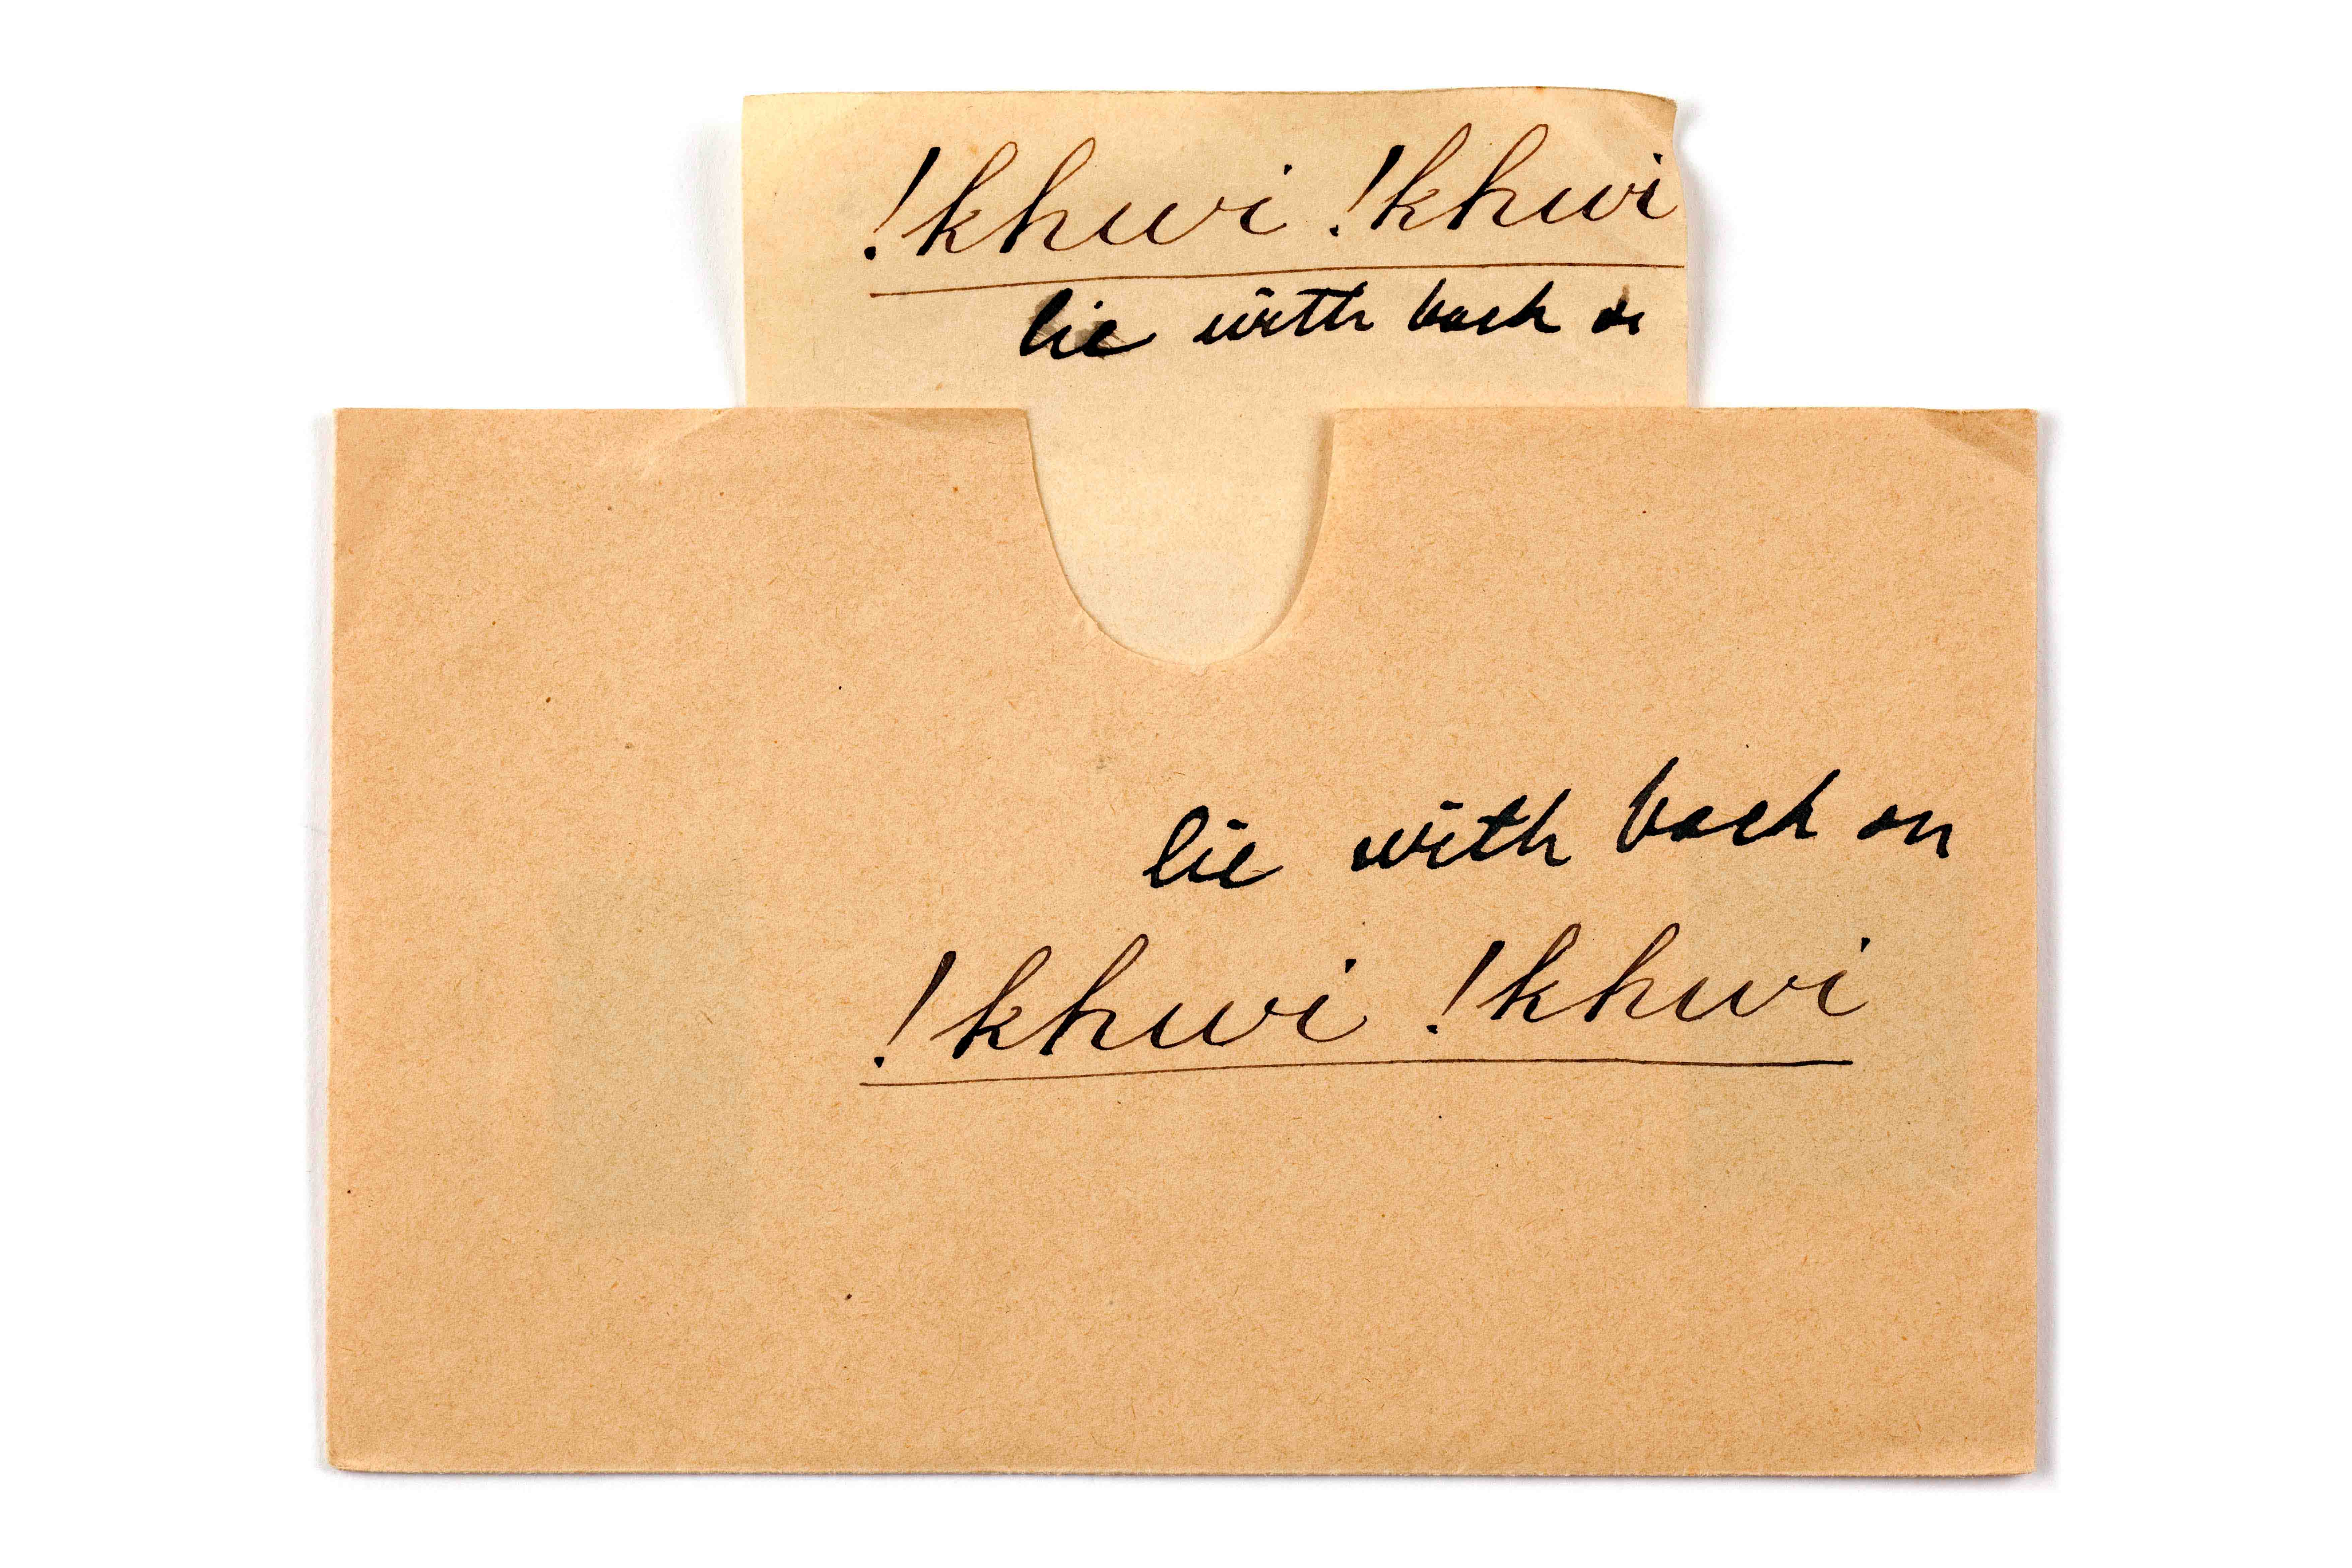 !khwi !khwi
lie with back on
lie with back on
!khwi !khwi